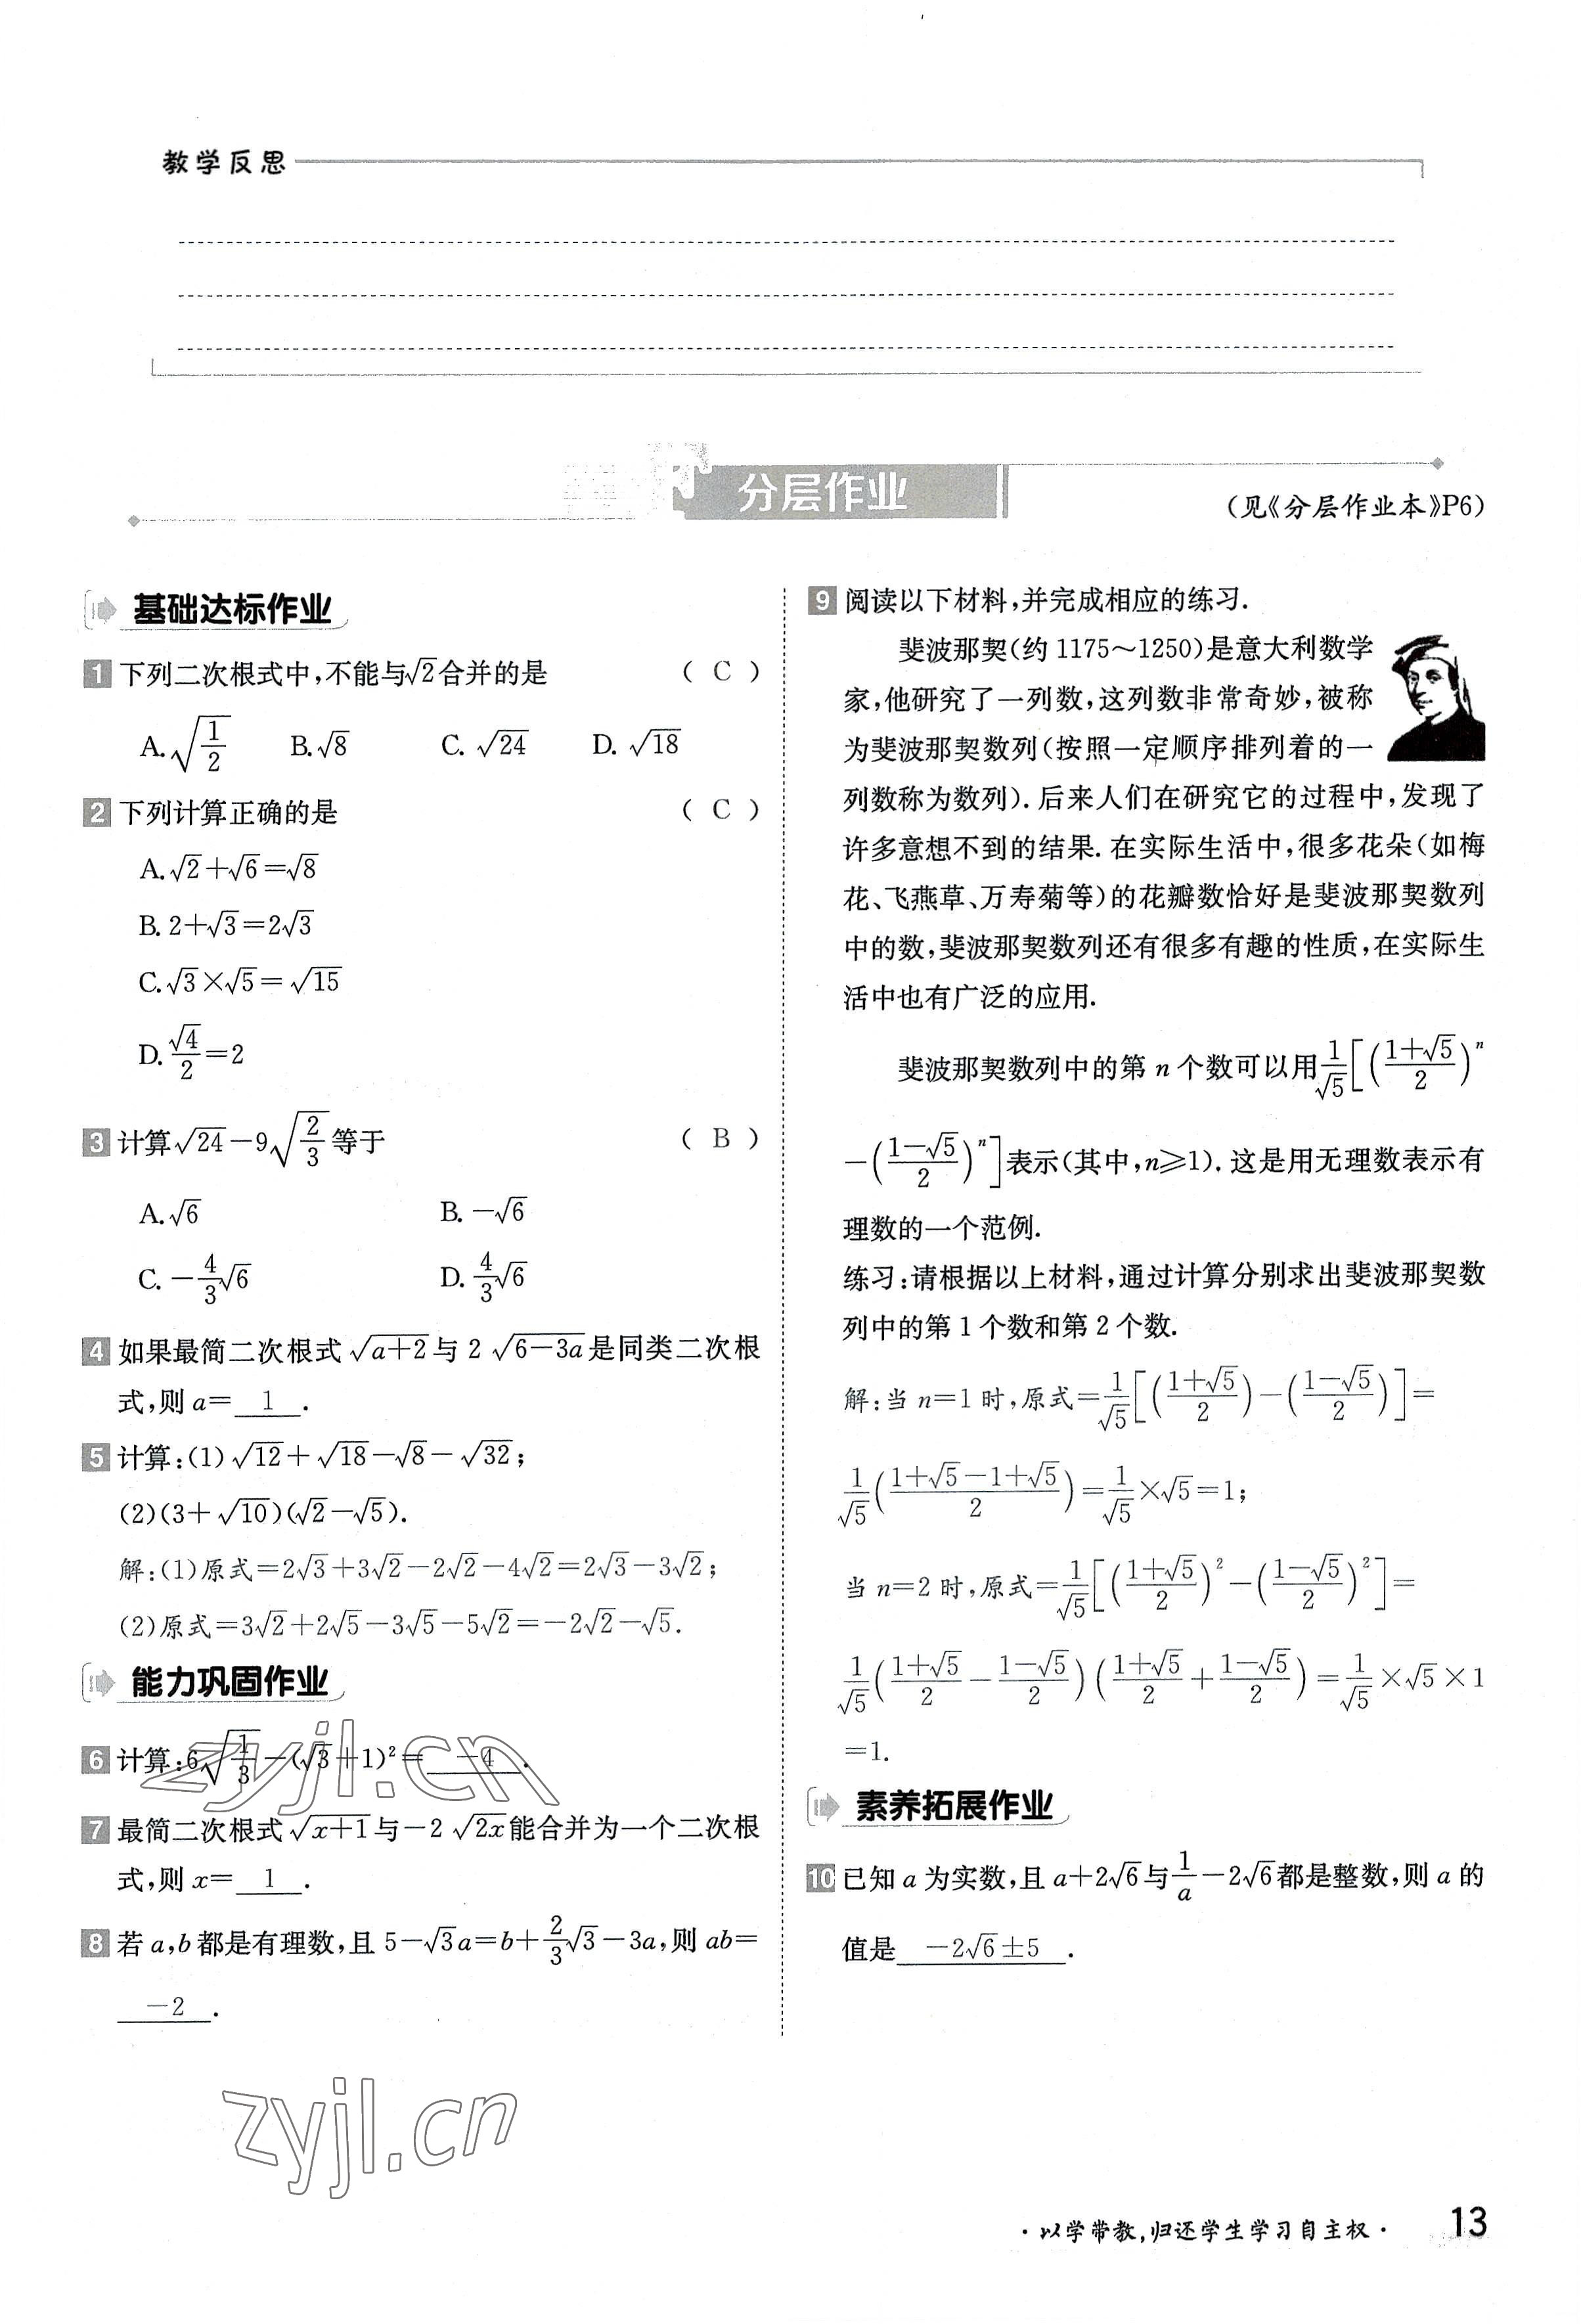 教学反思
分层作业
(见《分层作业本》P6)
基础达标作业
1 下列二次根式中,不能与√2合并的是 ( C )
A.√(1/2) B.√8 C. √24 D. √18
2 下列计算正确的是 ( C )
A.√2+√6=√8
B.2+√3=2√3
C.√3×√5=√15
D.√4/2=2
3 计算√24-9√(2/3)等于 ( B )
A.√6 B. -√6
C. -4/3√6 D. 4/3√6
4 如果最简二次根式√(a+2)与2√(6-3a)是同类二次根
式,则a= 1 .
5 计算:(1)√12+√18-√8-√32;
(2)(3+√10)(√2-√5).
解:(1)原式=2√3+3√2-2√2-4√2=2√3-3√2;
(2)原式=3√2+2√5-3√5-5√2=-2√2-√5.
能力巩固作业
6 计算:6√(1/3)-(√3+1)²= -4 .
7 最简二次根式√(x+1)与-2√(2x)能合并为一个二次根
式,则x= 1 .
8 若a,b都是有理数,且5-√3a=b+2/3√3-3a,则ab=
-2 .
9 阅读以下材料,并完成相应的练习.
斐波那契(约1175~1250)是意大利数学
家,他研究了一列数,这列数非常奇妙,被称
为斐波那契数列(按照一定顺序排列着的一
列数称为数列).后来人们在研究它的过程中,发现了
许多意想不到的结果.在实际生活中,很多花朵(如梅
花、飞燕草、万寿菊等)的花瓣数恰好是斐波那契数列
中的数,斐波那契数列还有很多有趣的性质,在实际生
活中也有广泛的应用.
斐波那契数列中的第n个数可以用1/√5[((1+√5)/2)ⁿ
-((1-√5)/2)ⁿ]表示(其中,n≥1).这是用无理数表示有
理数的一个范例.
练习:请根据以上材料,通过计算分别求出斐波那契数
列中的第1个数和第2个数.
解:当n=1时,原式=1/√5[((1+√5)/2)-((1-√5)/2)]=
1/√5((1+√5-1+√5)/2)=1/√5×√5=1;
当n=2时,原式=1/√5[((1+√5)/2)²-((1-√5)/2)²]=
1/√5((1+√5)/2-(1-√5)/2)((1+√5)/2+(1-√5)/2)=1/√5×√5×1
=1.
素养拓展作业
10 已知a为实数,且a+2√6与1/a-2√6都是整数,则a的
值是 -2√6±5 .
zyjl.cn
zyjl.cn
·以学带教,归还学生学习自主权· 13